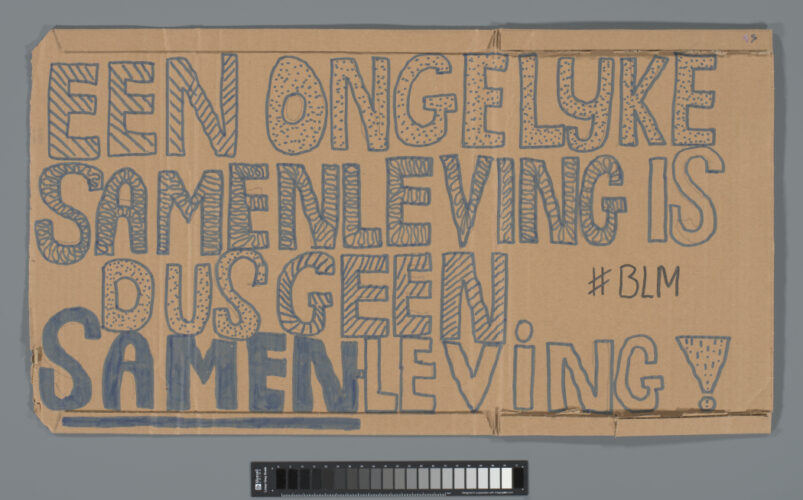 EEN ONGELYKE
SAMENLEVING IS
DUS GEEN
#BLM
SAMENLEViNG!